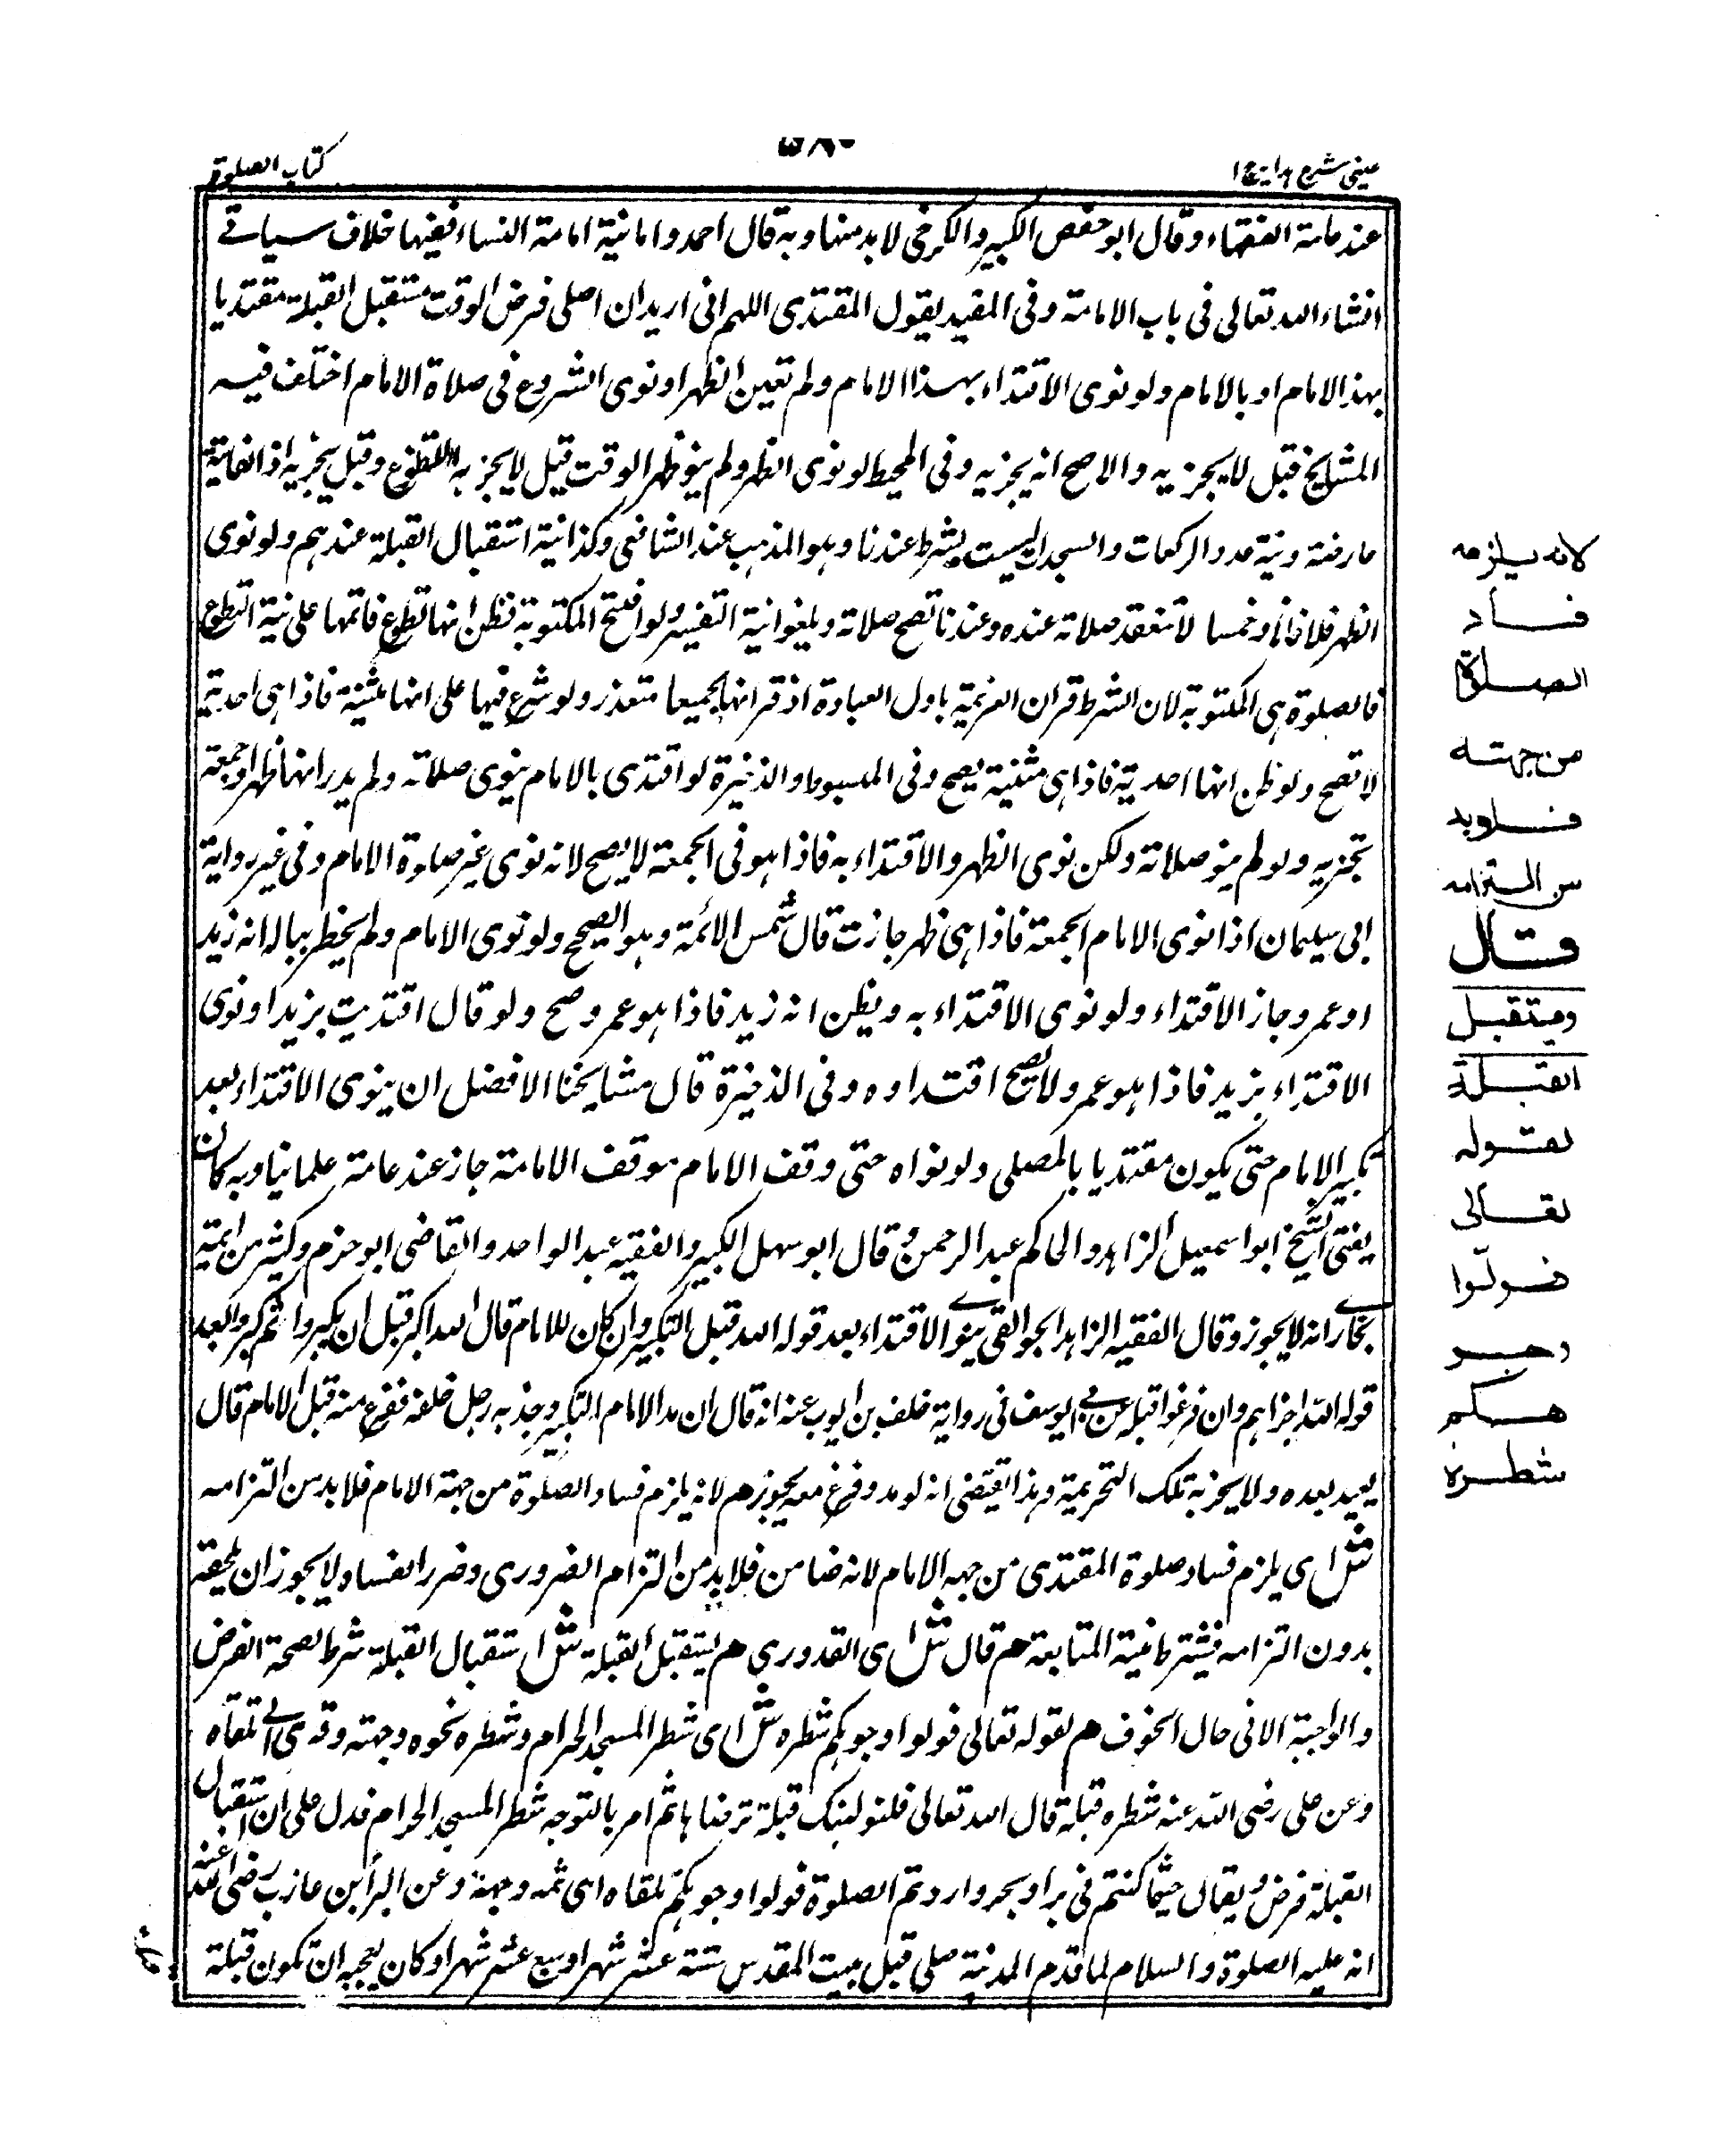 عينى شرح هداية ج ا
٥٨٠
كتاب الصلوة
عند عامة الفقهاء وقال ابو حفص الكبير والكرخى لا بد منها وبه قال احمد واما نية امامة النساء ففيها خلاف سياتے
انشاء الله تعالى فى باب الامامة وفى المفيد يقول المقتدى اللهم انى اريد ان اصلى فرض الوقت مستقبل القبلة مقتديا
بهذا الامام او بالامام ولو نوى الاقتداء بهذا الامام ولم تعين الظهر او نوى الشروع فى صلاة الامام اختلف فيه
المشايخ فقيل لا يجزيه والاصح انه يجزيه وفى المحيط لو نوى الظهر ولم ينو ظهر الوقت قيل لا يجزيه وقيل يجزيه اذ الفائتة
عارضة ونية عدد الركعات والسجدات ليست بشرط عندنا وهو المذهب عند الشافعى وكذا نية استقبال القبلة عندهم ولو نوى
الظهر ثلاثا او خمسا لا تنعقد صلاته عنده وعندنا تصح صلاته ويلغوا نية التغيير ولو افتتح المكتوبة فظن انها تطوع فاتمها على نية التطوع
فالصلوة هى المكتوبة لان الشرط قران العزيمة باول العبادة اذ قرانها بجميعها متعذر ولو شرع فيها على انها مثنية فاذا هى احدية
لا تصح ولو ظن انها احدية فاذا هى مثنية يصح وفى المبسوط والذخيرة لو اقتدى بالامام ينوى صلاته ولم يدر انها ظهر او جمعة
تجزيه ولو لم ينو صلاته ولكن نوى الظهر والاقتداء به فاذا هو فى الجمعة لا يصح لانه نوى غير صلوة الامام وفى غير رواية
ابى سليمان اذا نوى الامام الجمعة فاذا هى ظهر جازت قال شمس الائمة وهو الصحيح ولو نوى الامام ولم يخطر بباله انه زيد
او عمرو جاز الاقتداء ولو نوى الاقتداء به ويظن انه زيد فاذا هو عمرو صح ولو قال اقتديت بزيد او نوى
الاقتداء بزيد فاذا هو عمرو لا يصح اقتداوه وفى الذخيرة قال مشايخنا الافضل ان ينوى الاقتداء بعد
تكبير الامام حتى يكون مقتديا بالمصلى ولو نواه حتى وقف الامام موقف الامامة جاز عند عامة علمائنا وبه كان
يفتى الشيخ ابو اسمعيل الزاهد والحاكم عبد الرحمن وقال ابو سهل الكبير والفقيه عبد الواحد والقاضى ابو حزم وكثير من ائمة
بخارے انه لا يجوز وقال الفقيه الزاهد الجوالقى ينوے الاقتداء بعد قوله الله قبل التكبير وان كان للامام قال الله اكبر قبل ان يكبروا ثم كبروا بعد
قوله الله اجزاهم وان فرغوا قبله عن ابى يوسف فى رواية خلف بن ايوب عنه انه قال ان مد الامام التكبير وجذبه رجل خلفه ففرغ منه قبل الامام قال
يعيد بعده ولا يجزيه تلك التحريمة وهذا تقتضى انه لو مد وفرغ معه يجوز هم لانه يلزم فساد الصلوة من جهة الامام فلا بد من التزامه
ش اى يلزم فساد صلوة المقتدى من جهة الامام لانه ضامن فلا بد من التزام الضرورى وضرر الفساد لا يجوز ان يلحقه
بدون التزامه فيشترط نية المتابعة هم قال ش اى القدورى هم يستقبل القبلة ش استقبال القبلة شرط لصحة الفرض
والواجبة الا فى حال الخوف هم لقوله تعالى فولوا وجوهكم شطره ش اى شطر المسجد الحرام وشطره نحوه وجهته تلقاه
وعن على رضى الله عنه شطره قبلة قال الله تعالى فلنولينك قبلة ترضاها ثم امر بالتوجه شطر المسجد الحرام فدل على ان استقبال
القبلة فرض ويقال حيثما كنتم فى بر او بحر واردتم الصلوة فولوا وجوهكم تلقاه اى ثمه وجهة وعن البرأ بن عازب رضى الله عنه
انه عليه الصلوة والسلام لما قدم المدينة صلى قبل بيت المقدس ستة عشر شهرا او سبع عشر شهرا وكان يعجبه ان تكون قبلة
لانه يلزمه
فساد
الصلوة
من جهته
فلا بد
من التزامه
قال
ويستقبل
القبلة
لقوله
تعالى
فولّوا
وجو
هكم
شطره